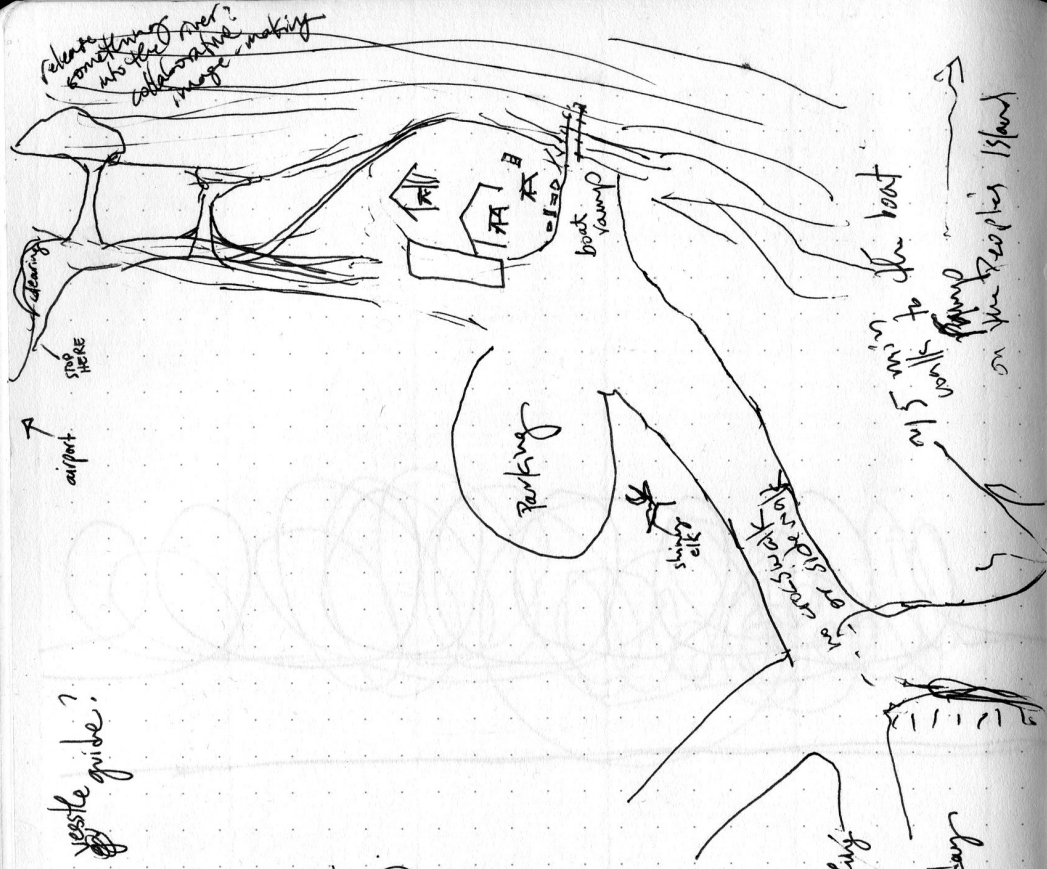 release
something
into the river?
collaborative
image-making
clearing
STOP
HERE
airport
boat
ramp
Parking
shiny
elk
no crosswalk
or sidewalk
N/5 min
walk to
the boat
ramp
on the Peoples Island
guide?